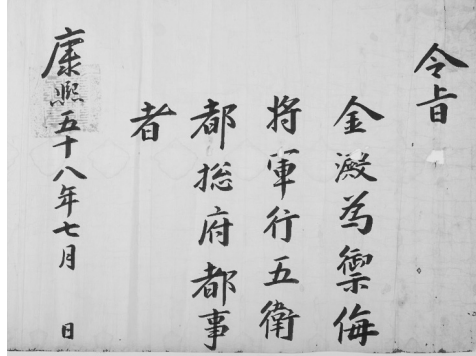 令旨
金澱為禦侮
將軍行五衛
都捴府都事
者
康熙五十八年七月 日